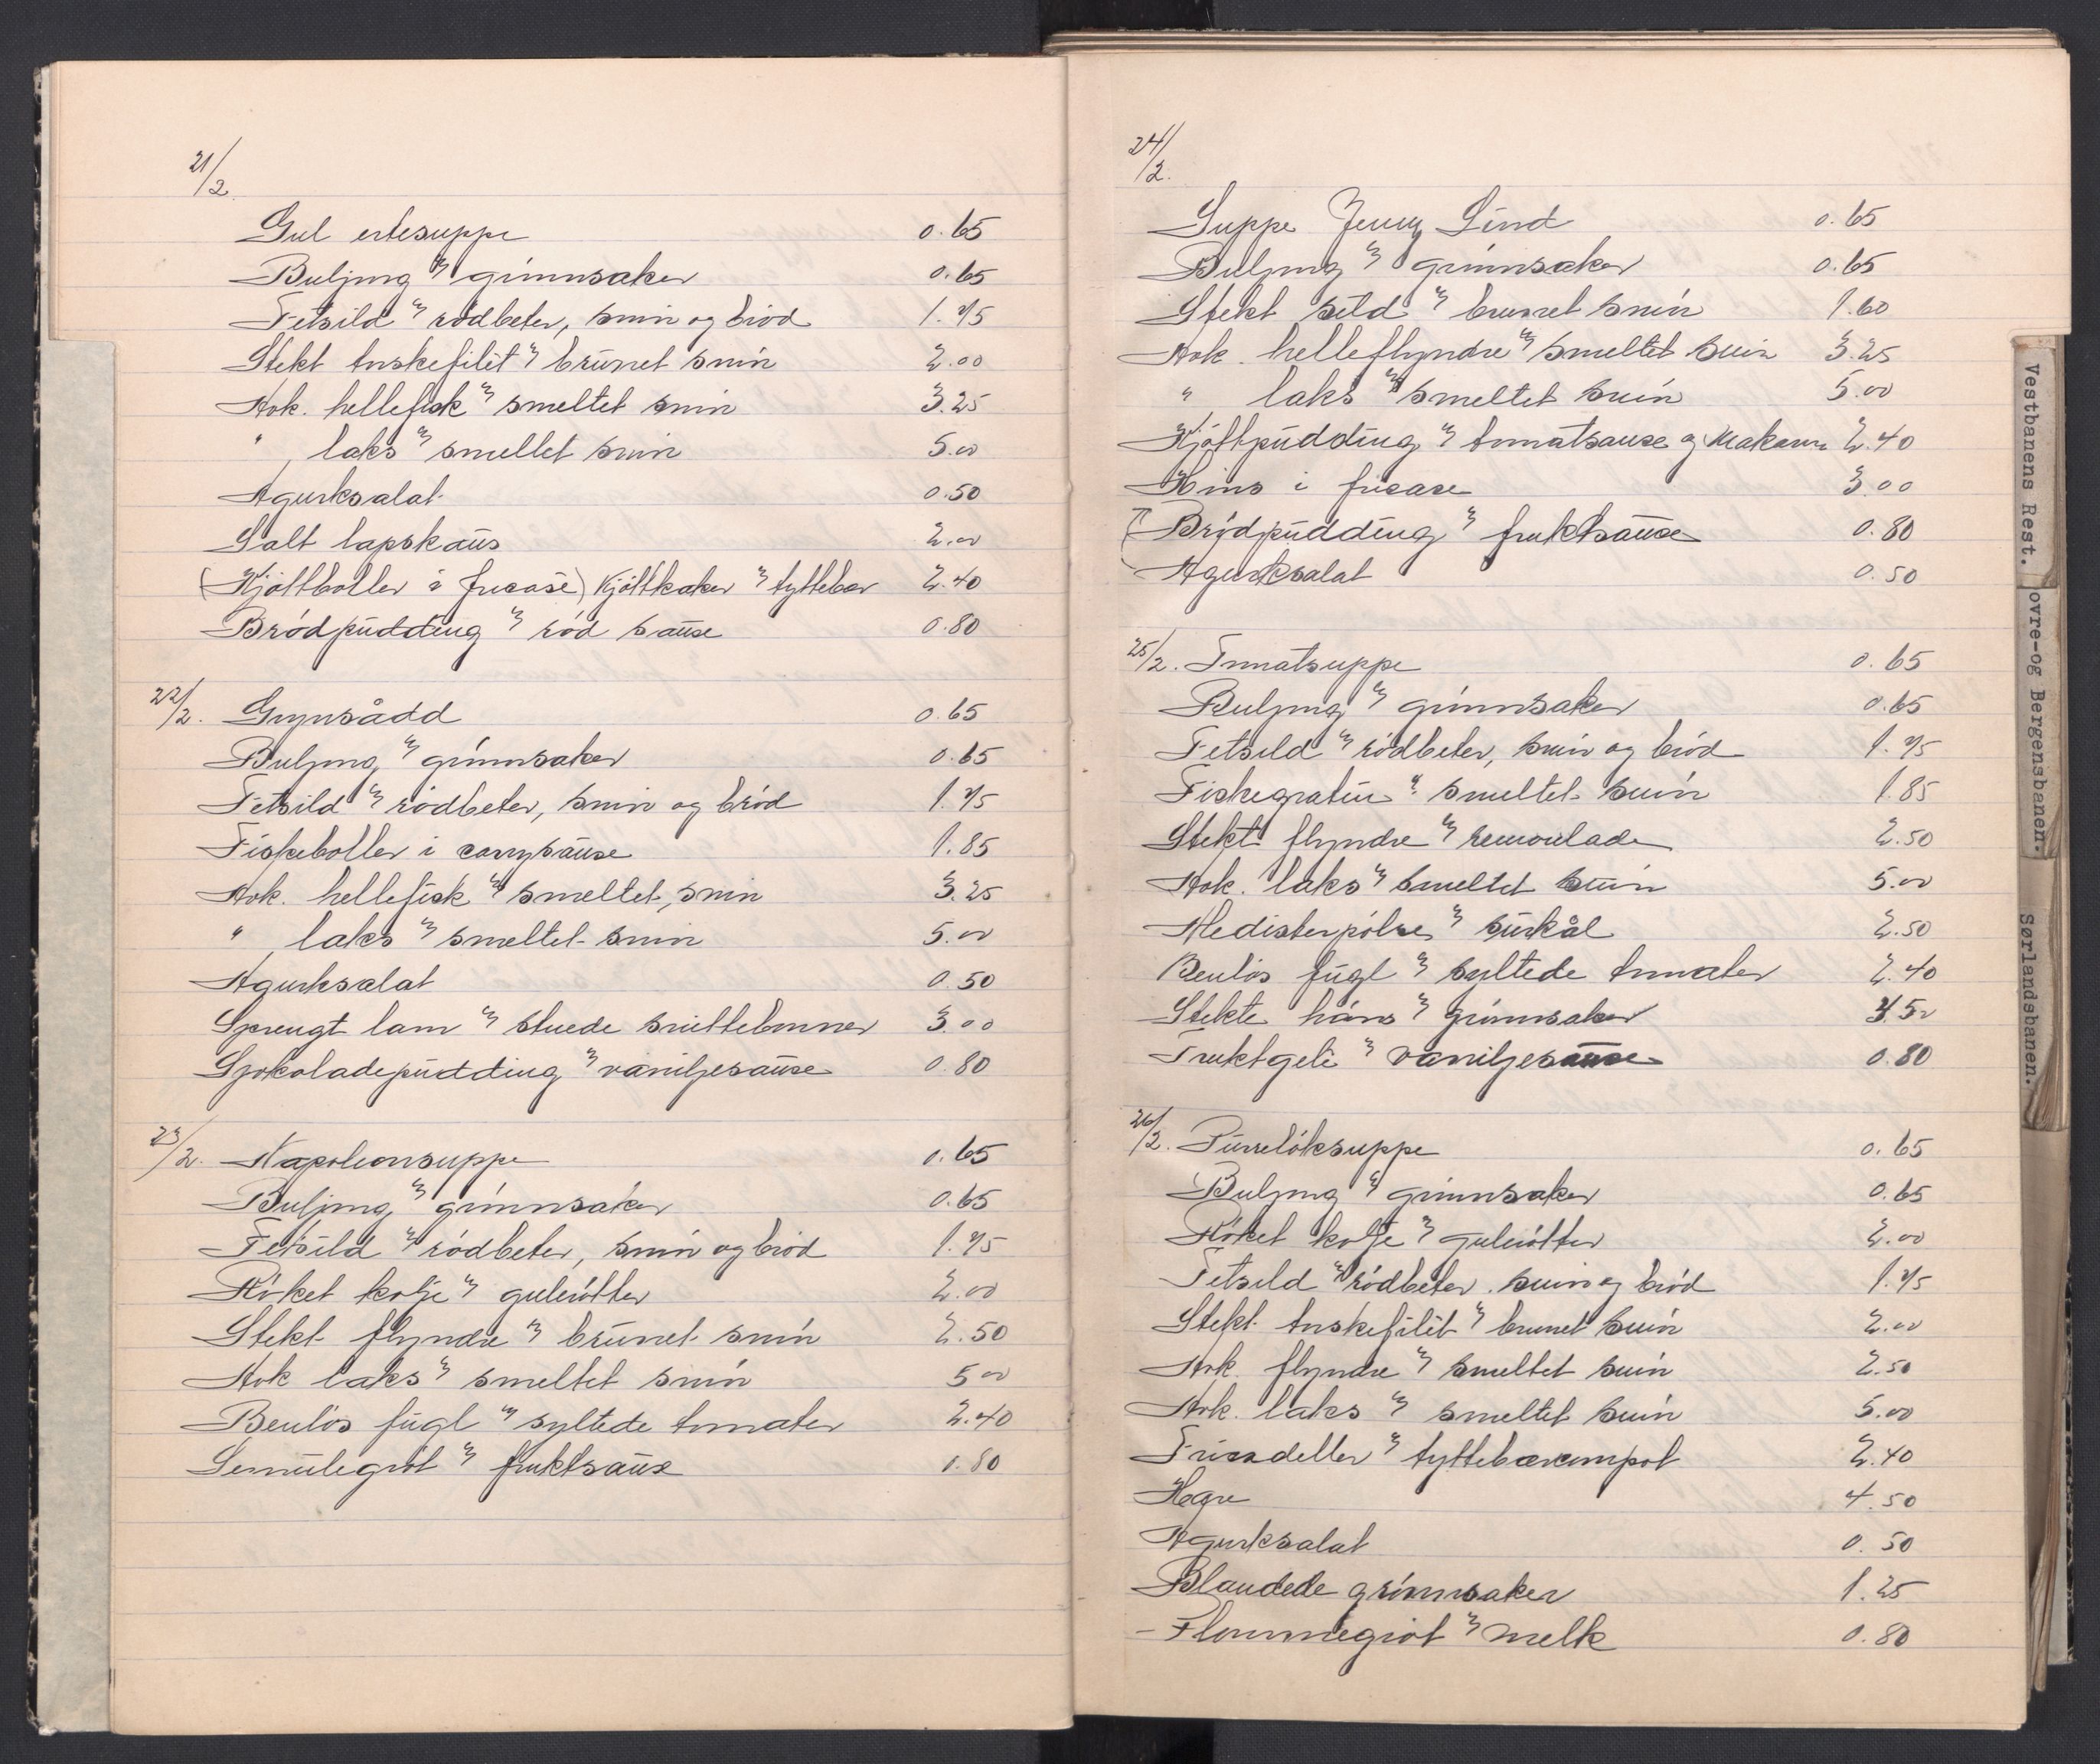 21/2
Gul ertesuppe 0.65
Buljong m grönnsaker 0.65
Fetsild m rödbeter, smör og bröd 1.75
Stekt torskefilét m brunet smör 2.00
Kok. hellefisk m smeltet smör 3.25
" laks m smeltet smör 5.00
Agurksalat 0.50
Salt lapskaus 2.00
(Kjöttboller i fricasé) Kjöttkaker m tyttebær 2.40
Brödpudding m röd sause 0.80
22/2. Grynsådd 0.65
Buljong m grönnsaker 0.65
Fetsild m rödbeter, smör og bröd 1.75
Fiskeboller i carrysause 1.85
Kok. hellefisk m smeltet smör 3.25
" laks m smeltet smör 5.00
Agurksalat 0.50
Sprengt lam m stuede snittebönner 3.00
Sjokoladepudding m vaniljesause 0.80
23/2. Napoleonsuppe 0.65
Buljong m grönnsaker 0.65
Fetsild m rödbeter, smör og bröd 1.75
Röket kolje m gulerötter 2.00
Stekt flyndre m brunet smör 2.50
Kok laks m smeltet smör 5.00
Benlös fugl m syltede tomater 2.40
Semulegröt m fruktsause 0.80
24/2.
Suppe Jenny Lind 0.65
Buljong m grönnsaker 0.65
Stekt sild m brunet smör 1.60
Kok. helleflyndre m smeltet smör 3.25
" laks m smeltet smör 5.00
Kjöttpudding m tomatsause og Makaroni 2.40
Höns i fricase 3.00
Brödpudding m fruktsause 0.80
Agurksalat 0.50
25/2. Tomatsuppe 0.65
Buljong m grönnsaker 0.65
Fetsild m rödbeter, smör og bröd 1.75
Fiskegratin m smeltet smör 1.85
Stekt flyndre m remoulade 2.50
Kok. laks m smeltet smör 5.00
Medisterpölse m surkål 2.50
Benlös fugl m syltede tomater 2.40
Stekte höns m grönnsaker 4.50
Fruktgelé m vaniljesause 0.80
26/2. Purrelöksuppe 0.65
Buljong m grönnsaker 0.65
Röket kolje m gulerötter 2.00
Fetsild m rödbeter. smör og bröd 1.75
Stekt torskefilét m brunet smör 2.00
Kok. flyndre m smeltet smör 2.50
Kok. laks m smeltet smör 5.00
Fricadeller m tyttebærcompot 2.40
Hare 4.50
Agurksalat 0.50
Blandede grönnsaker 1.25
- Flommegröt m melk 0.80
Vestbanens Rest.
ovre-og Bergensbanen.
Sørlandsbanen.